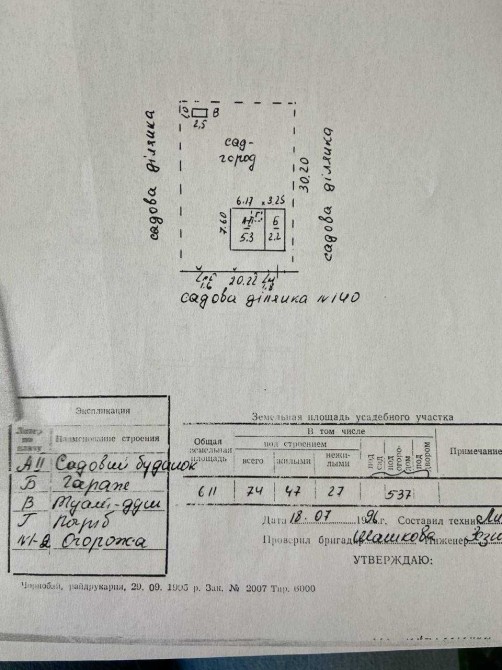 1,0
В
2,5
садова ділянка
сад-
город
30.20
садова ділянка
6.17 3.25
7.60
А-II
Б
5.3
2.2
1.6 20.22 1.8
садова ділянка №140
Экспликация
Литер по плану
Наименование строения
АII Садовий будинок
Б Гараж
В Туалет-душ
Г Погріб
№1-2 Огорожа
Земельная площадь усадебного участка
Общая земельная площадь
В том числе
под строением
всего
жилыми
нежилыми
под сад под огородом под двором
Примечание
611 74 47 27 537
Дата 18.07 1996г. Составил техник
Проверил бригадир Шашкова Инженер
УТВЕРЖДАЮ:
Чернобай, райдрукарня, 29. 09. 1995 р. Зак. № 2007 Тир. 6000